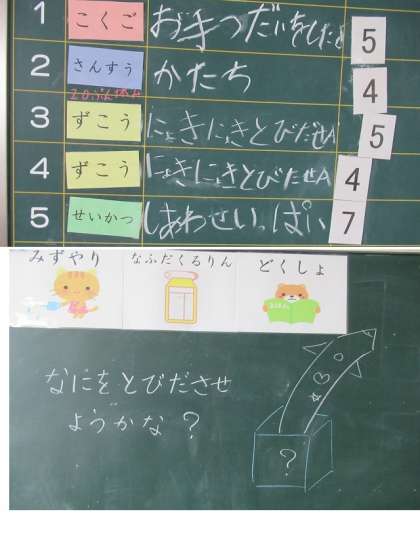 1 こくご おてつだいをしたよ 5
2 さんすう かたち 4
3 ずこう にょきにょきとびだせA 5
4 ずこう にょきにょきとびだせA 4
5 せいかつ しあわせいっぱい 7
みずやり なふだくるりん どくしょ
なにをとびださせ
ようかな？
?